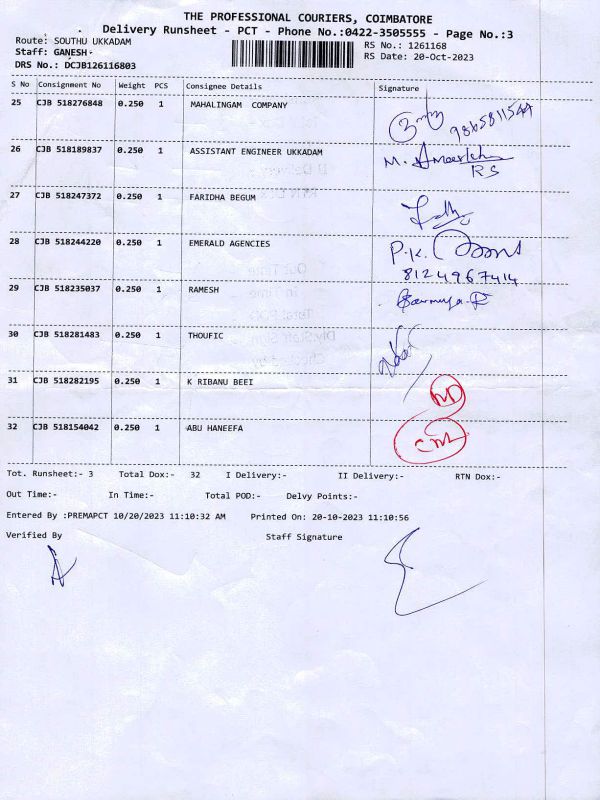 THE PROFESSIONAL COURIERS, COIMBATORE
Delivery Runsheet - PCT - Phone No.:0422-3505555 - Page No.:3
Route: SOUTHU UKKADAM
RS No.: 1261168
Staff: GANESH-
RS Date: 20-Oct-2023
DRS No.: DCJB126116803
S No Consignment No Weight PCS Consignee Details Signature
25 CJB 518276848 0.250 1 MAHALINGAM COMPANY
9865811544
26 CJB 518189837 0.250 1 ASSISTANT ENGINEER UKKADAM M.
RS
27 CJB 518247372 0.250 1 FARIDHA BEGUM
28 CJB 518244220 0.250 1 EMERALD AGENCIES P.K.
8124967414
29 CJB 518235037 0.250 1 RAMESH Sowmya.R
30 CJB 518281483 0.250 1 THOUFIC
31 CJB 518282195 0.250 1 K RIBANU BEEI ND
32 CJB 518154042 0.250 1 ABU HANEEFA
Tot. Runsheet:- 3 Total Dox:- 32 I Delivery:- II Delivery:- RTN Dox:-
Out Time:- In Time:- Total POD:- Delvy Points:-
Entered By :PREMAPCT 10/20/2023 11:10:32 AM Printed On: 20-10-2023 11:10:56
Verified By Staff Signature